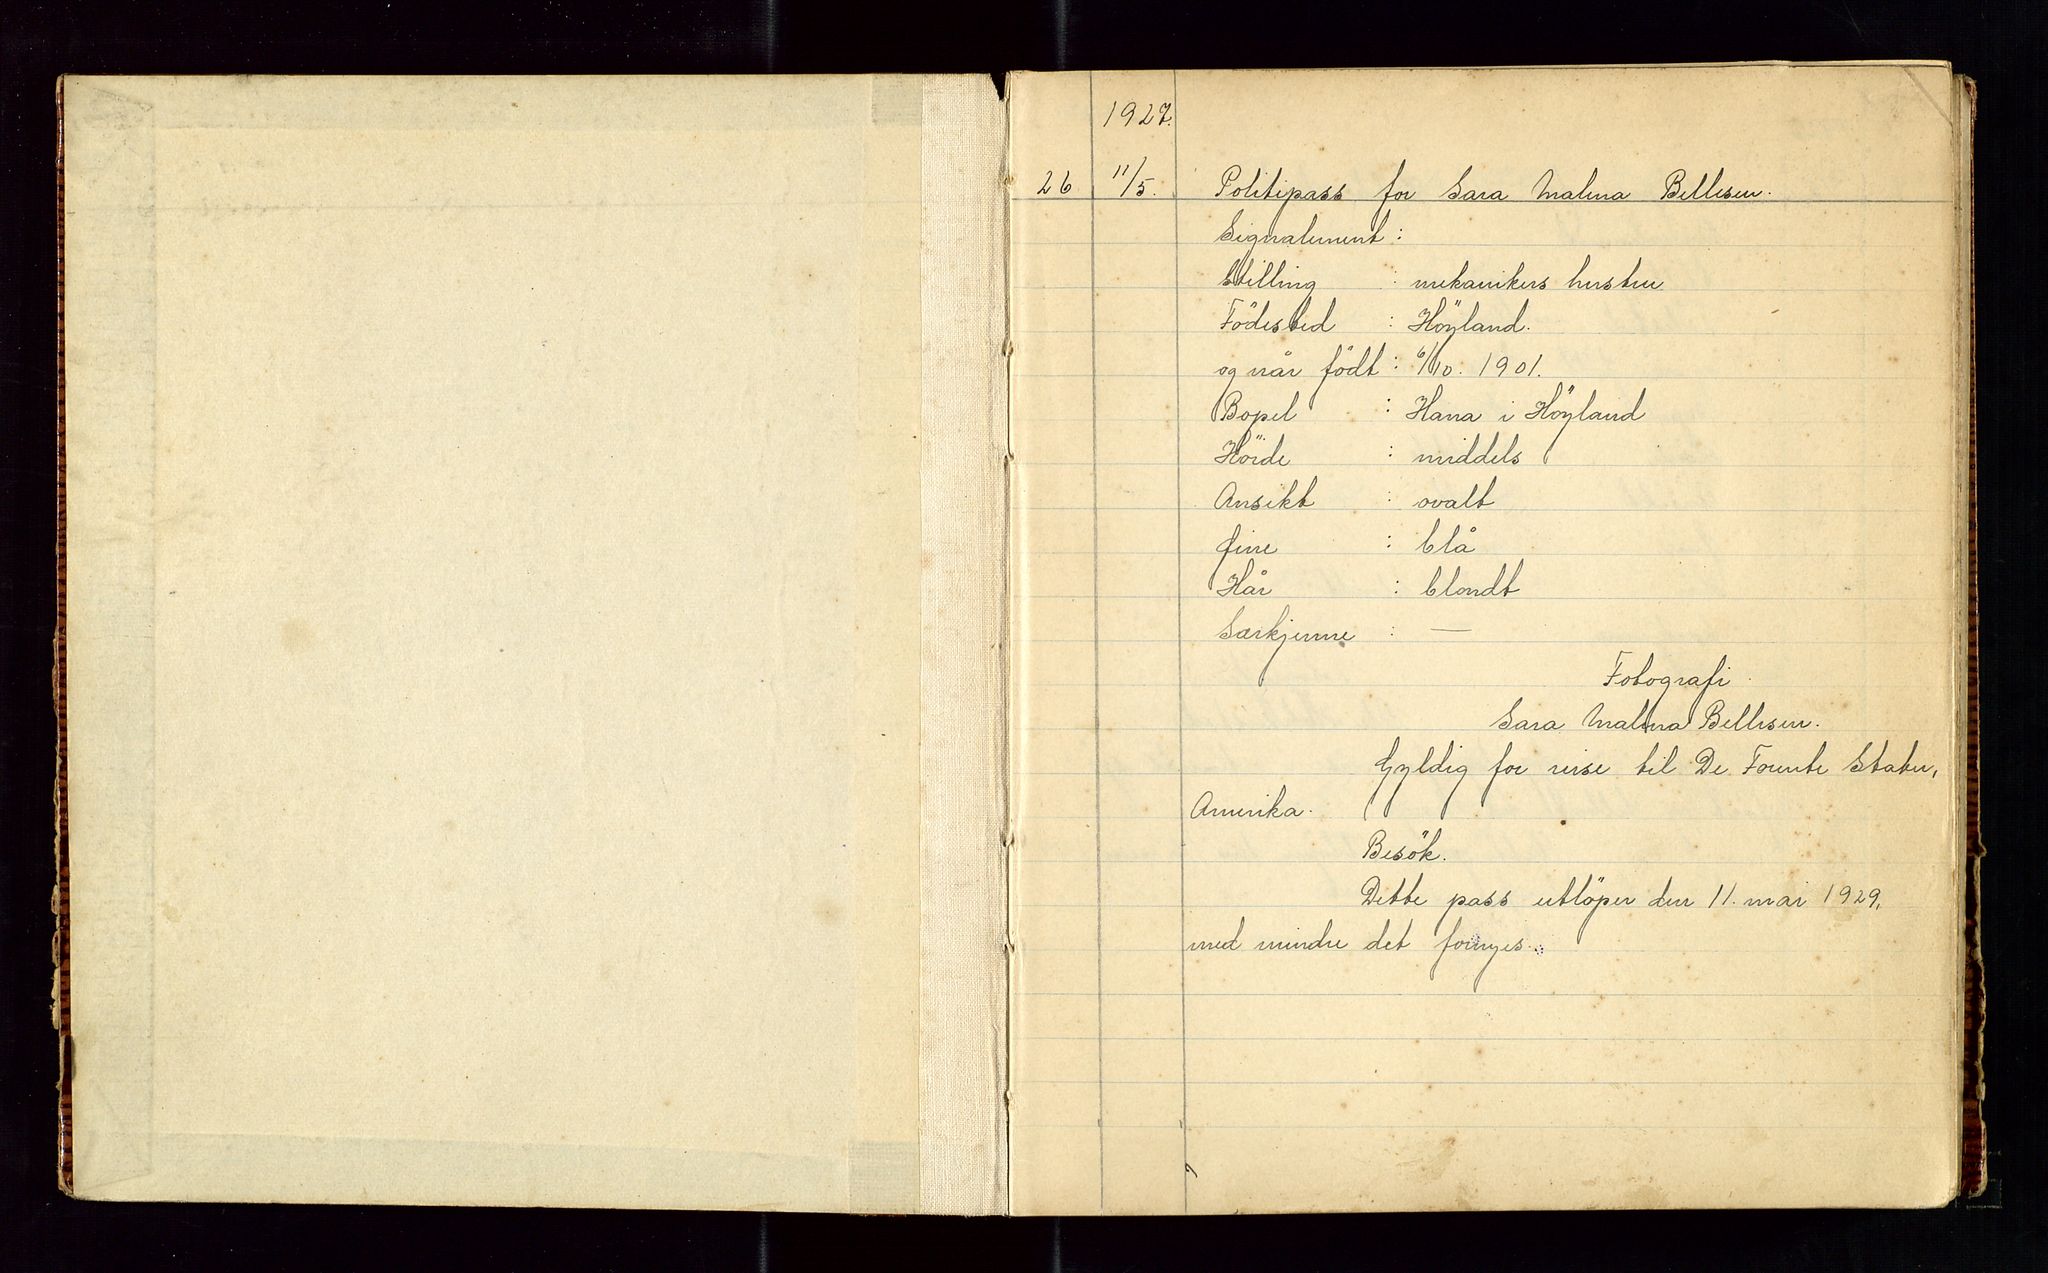 1927.
26 11/5. Politipass for Sara Malena Bellesen.
Signalement:
Stilling : mekanikers hustru
Födested : Höyland.
og når födt : 6/10. 1901.
Bopel : Hana i Höyland
Höide : middels
Ansikt : ovalt
Øine : blå
Hår : blondt
Særkjenne : —
Fotografi
Sara Malena Bellesen.
Gyldig for reise til De Forente Stater,
Amerika.
Besök.
Dette pass utlöper den 11. mai 1929,
med mindre det fornyes.